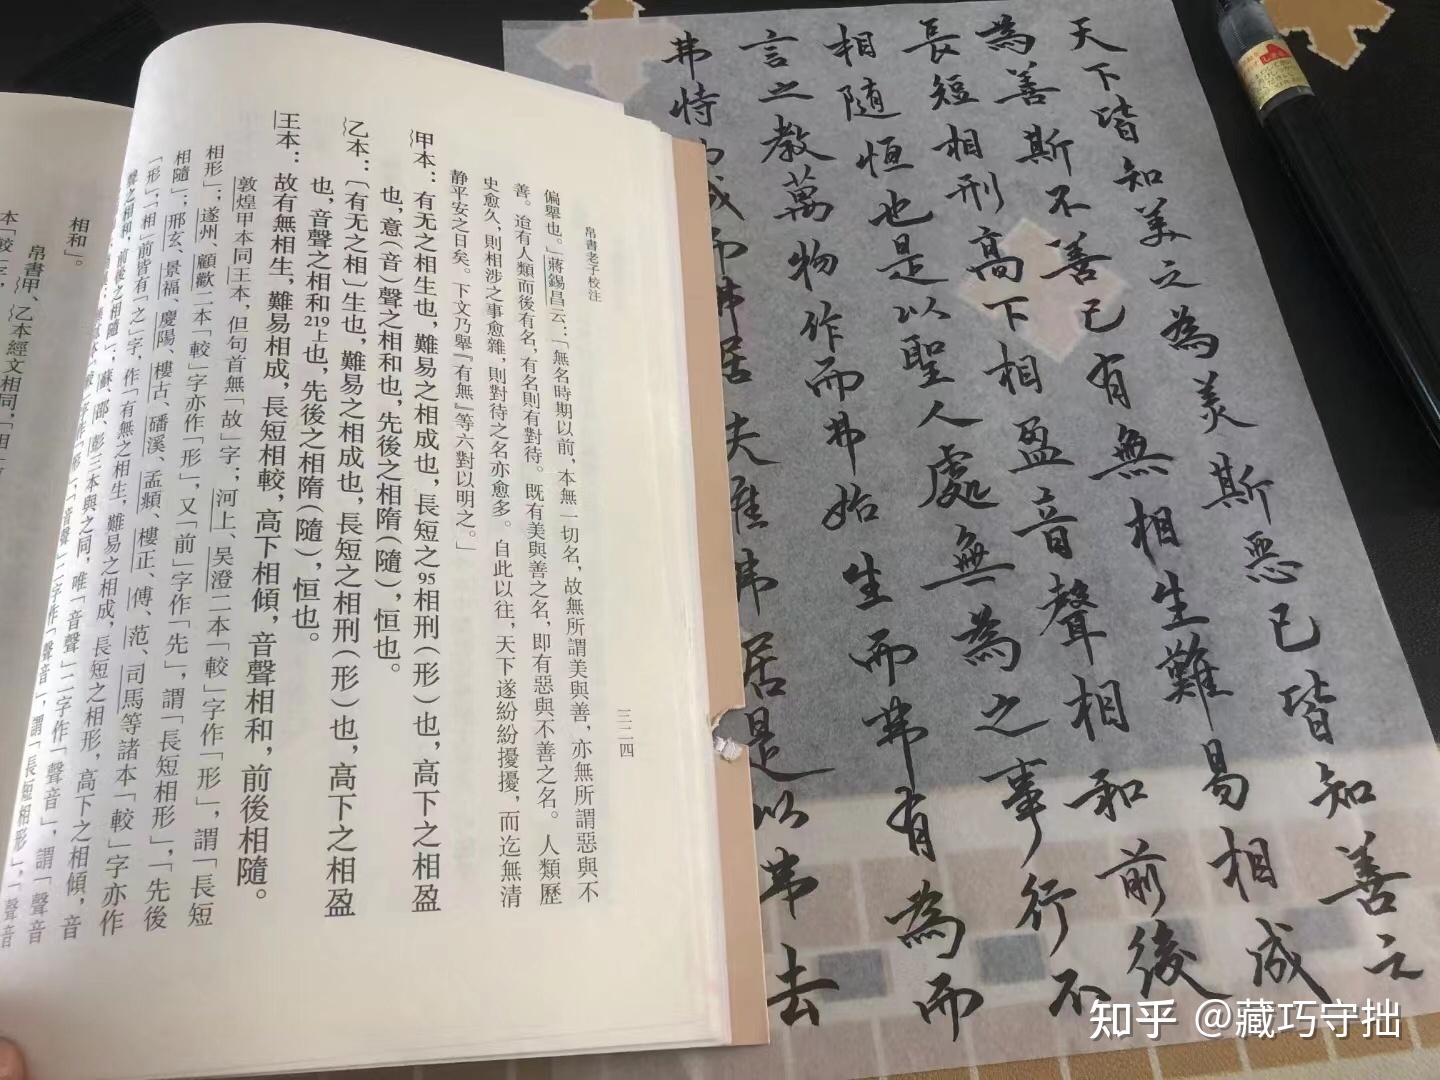 天下皆知美之為美斯惡已皆知善之
為善斯不善已有無相生難易相成
長短相刑高下相盈音聲相和前後
相隨恒也是以聖人處無為之事行不
言之教萬物作而弗始生而弗有為而
弗恃功成而弗居夫唯弗居是以弗去
帛書老子校注
三二四
偏舉也。」蔣錫昌云:「無名時期以前,本無一切名,故無所謂美與善,亦無所謂惡與不
善。迨有人類而後有名,有名則有對待。既有美與善之名,即有惡與不善之名。人類歷
史愈久,則相涉之事愈雜,則對待之名亦愈多。自此以往,天下遂紛紛擾擾,而迄無清
静平安之日矣。下文乃舉『有無』等六對以明之。」
甲本:有无之相生也,難易之相成也,長短之95相刑(形)也,高下之相盈
也,意(音)聲之相和也,先後之相隋(隨),恒也。
乙本:〔有无之相〕生也,難易之相成也,長短之相刑(形)也,高下之相盈
也,音聲之相和219上也,先後之相隋(隨),恒也。
王本:故有無相生,難易相成,長短相較,高下相傾,音聲相和,前後相隨。
敦煌甲本同王本,但句首無「故」字;河上、吴澄二本「較」字作「形」,謂「長短
相形」;遂州、顧歡二本「較」字亦作「形」,又「前」字作「先」,謂「長短相形」,「先後
相隨」;邢玄、景福、慶陽、樓古、磻溪、孟頫、樓正、傅、范、司馬等諸本「較」字亦作
「形」,「相」前皆有「之」字,作「有無之相生,難易之相成,長短之相形,高下之相傾,音
聲之相和,前後之相隨」;蘇、邵、彭三本與之同,唯「音聲」二字作「聲音」,謂「聲音
相和」。
帛書甲、乙本經文相同,「相
本「較」字,
知乎 @藏巧守拙